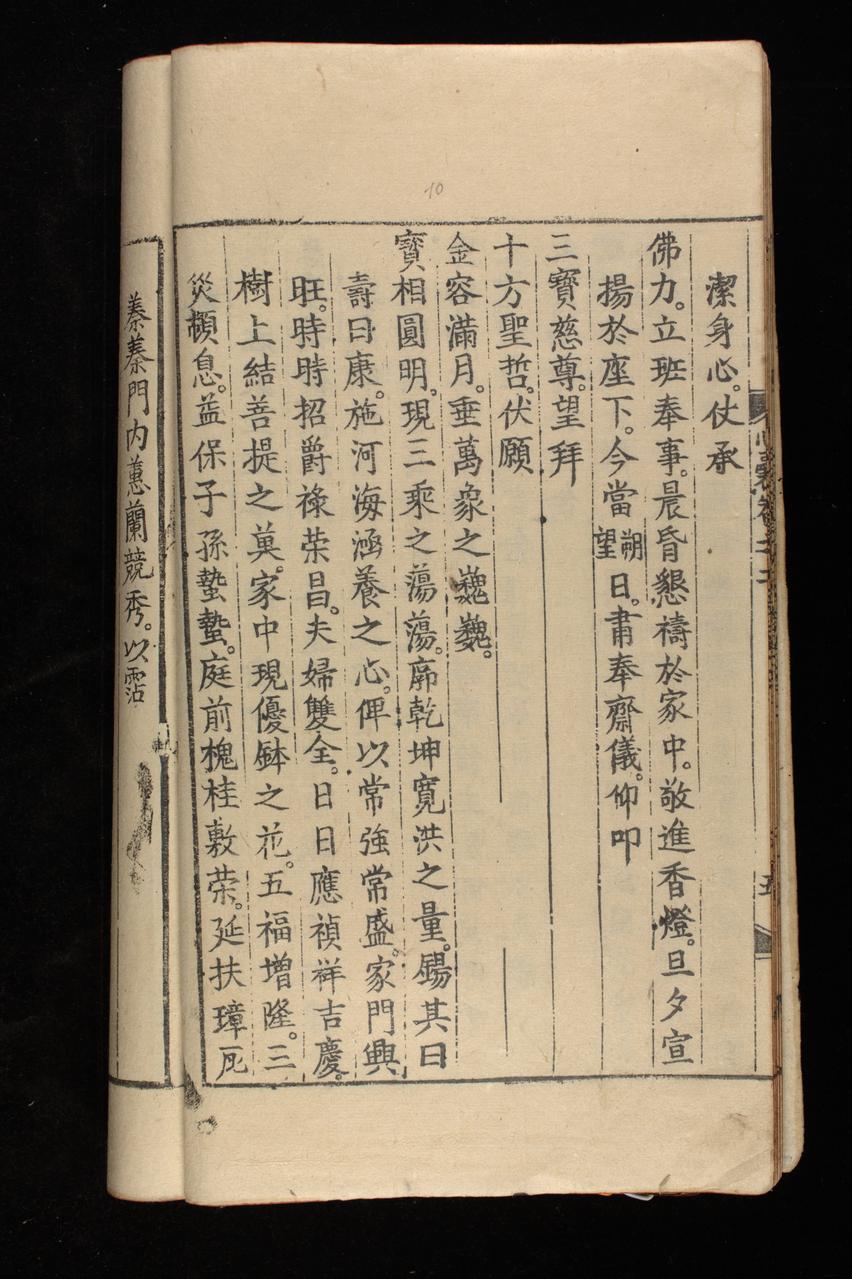 潔身心。仗承
佛力。立班奉事。晨昏懇禱於家中。敬進香燈。旦夕宣
揚於座下。今當朔望日。肅奉齋儀。仰叩
三寶慈尊。望拜
十方聖哲。伏願
金容滿月。垂萬象之巍巍。
寳相圓明。現三乘之蕩蕩。廓乾坤寬洪之量。錫其日
壽日康。施河海涵養之心。俾以常強常盛。家門興
旺。時時招爵祿荣昌。夫婦雙全。日日應禎祥吉慶。
樹上結善提之菓。家中現優鉢之花。五福增隆。三
災頓息。益保子孫蟄蟄。庭前槐桂敷荣。延扶璋瓦
蓁蓁門内蕙蘭競秀。以霑
之二
五
10